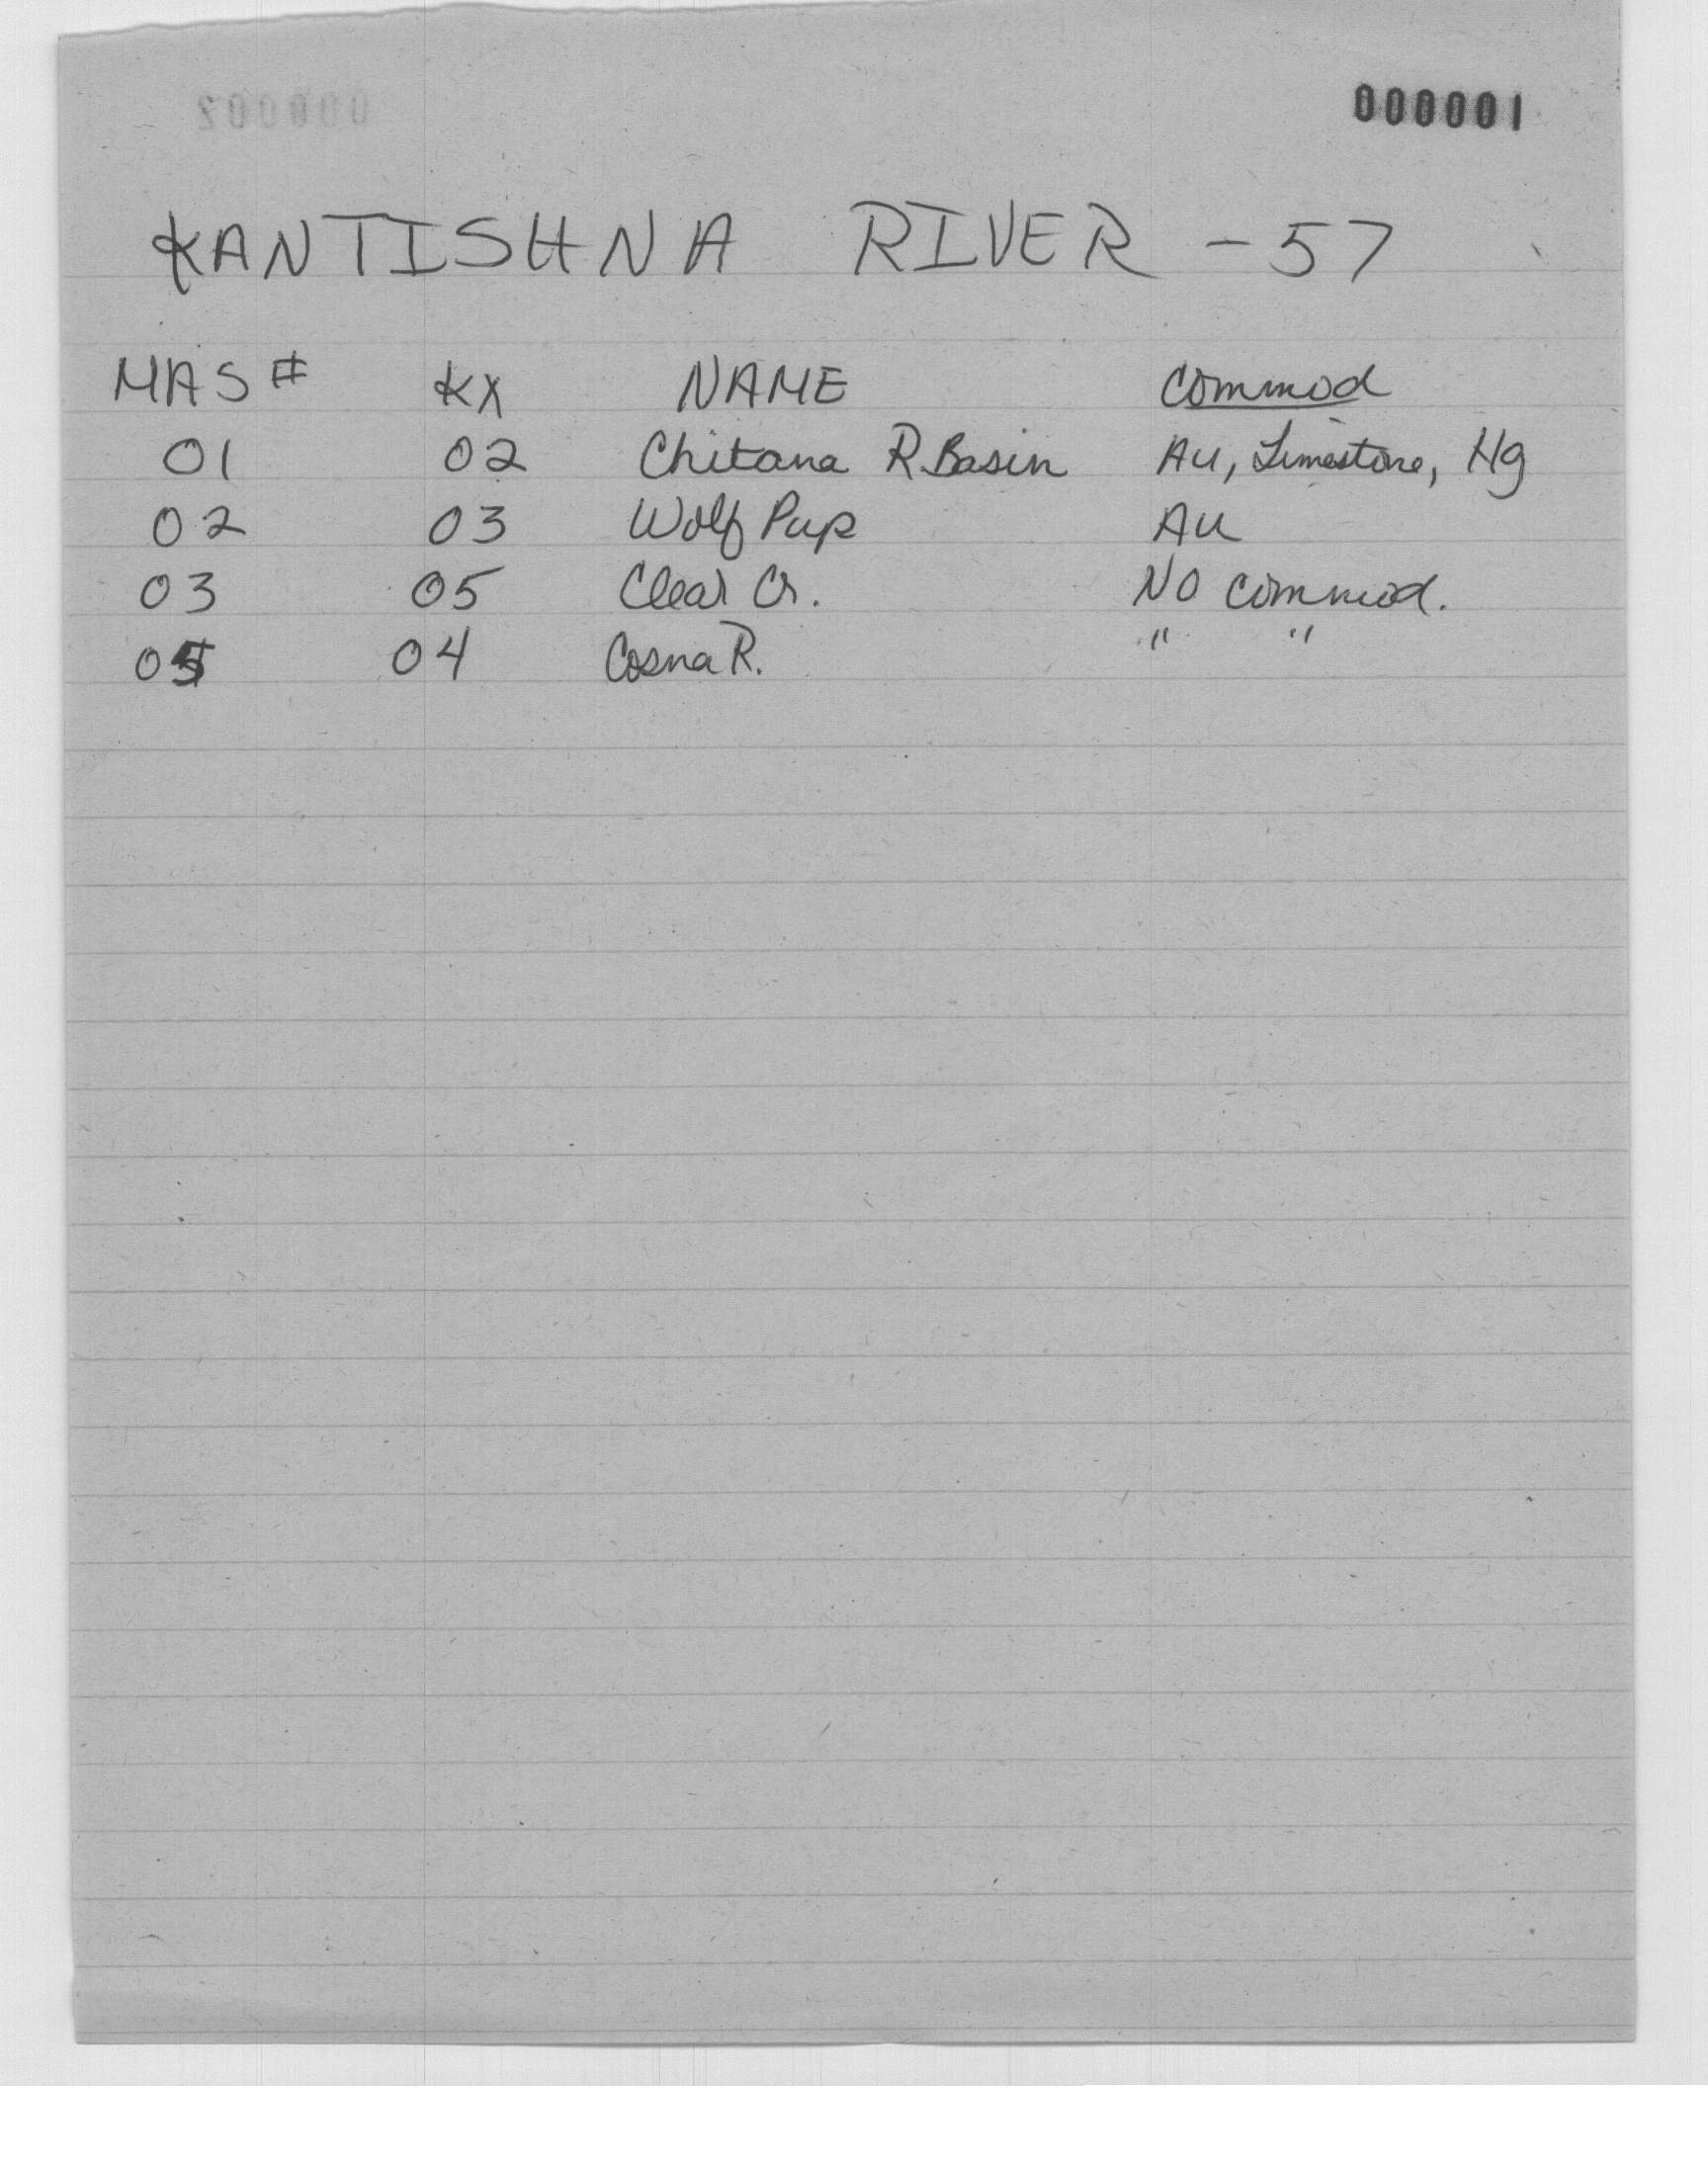 000001
KANTISHNA RIVER - 57
MAS # KX NAME Commod
01 02 Chitana R Basin Au, Limestone, Hg
02 03 Wolf Pup Au
03 05 Clear Cr. No commod.
05 04 Cosna R. " "